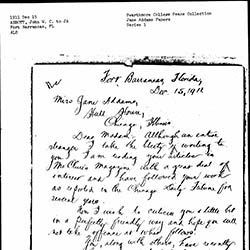 1911 Dec 15
ABBOTT, John W. C. to JA
Fort Barrancas, FL
ALS
Swarthmore College Peace Collection
Jane Addams Papers
Series 1
Fort Barrancas, Florida,
Dec. 15, 1911
Miss Jane Addams,
Hull House,
Chicago, Illinois
Dear Madam: Although an entire
stranger I take the liberty of writing to
you. I am reading your articles in
McClure's Magazine with a great deal of
interest and I have followed your work
as reported in the Chicago Daily Tribune for
several years.
Now I wish to criticise you a little bit
in a perfectly friendly way and hope you will
not take offense at what follows.
You, along with others, have recently